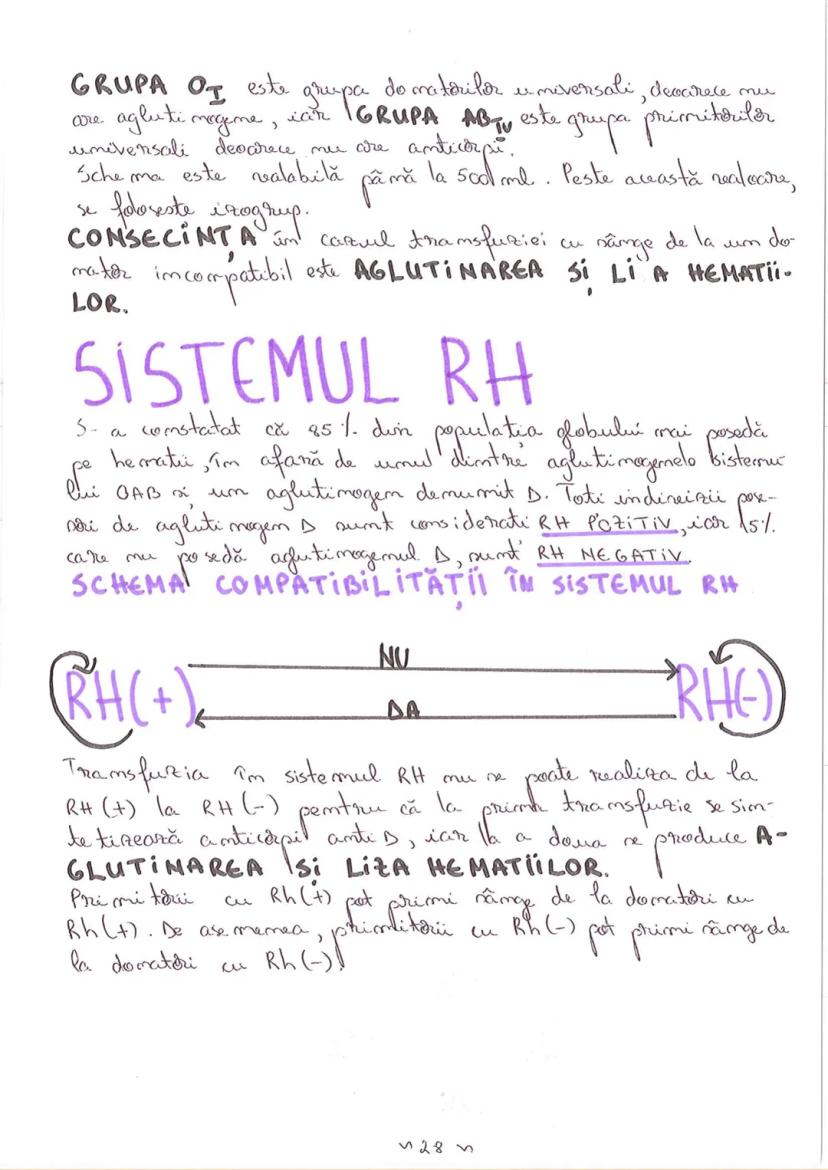 GRUPA OI este grupa donatorilor universali, deoarece nu
are aglutinogene, iar GRUPA ABIV este grupa primitorilor
universali deoarece nu are anticorpi.
Schema este valabilă până la 500 ml. Peste această valoare,
se folosește izogrup.
CONSECINȚA în cazul transfuziei cu sânge de la un do-
nator incompatibil este AGLUTINAREA ȘI LI A HEMATII-
LOR.
SISTEMUL RH
S-a constatat că 85% din populația globului mai posedă
pe hematii, în afară de unul dintre aglutinogenele sistemu-
lui OAB și un aglutinogen denumit D. Toti indivizii pose-
sori de aglutinogen D sunt considerati RH POZITIV, iar 15%
care nu posedă aglutinogenul D, sunt RH NEGATIV.
SCHEMA COMPATIBILITĂȚII ÎN SISTEMUL RH
NU
RH(+) RH(-)
DA
Transfuzia în sistemul RH nu se poate realiza de la
RH (+) la RH (-) pentru că la prima transfuzie se sin-
tetizează anticorpi anti D, iar la a doua se produce A-
GLUTINAREA ȘI LIZA HEMATIILOR.
Primitorii cu Rh(+) pot primi sânge de la donatori cu
Rh(+). De asemenea, primitorii cu Rh(-) pot primi sânge de
la donatori cu Rh(-).
~ 28 ~